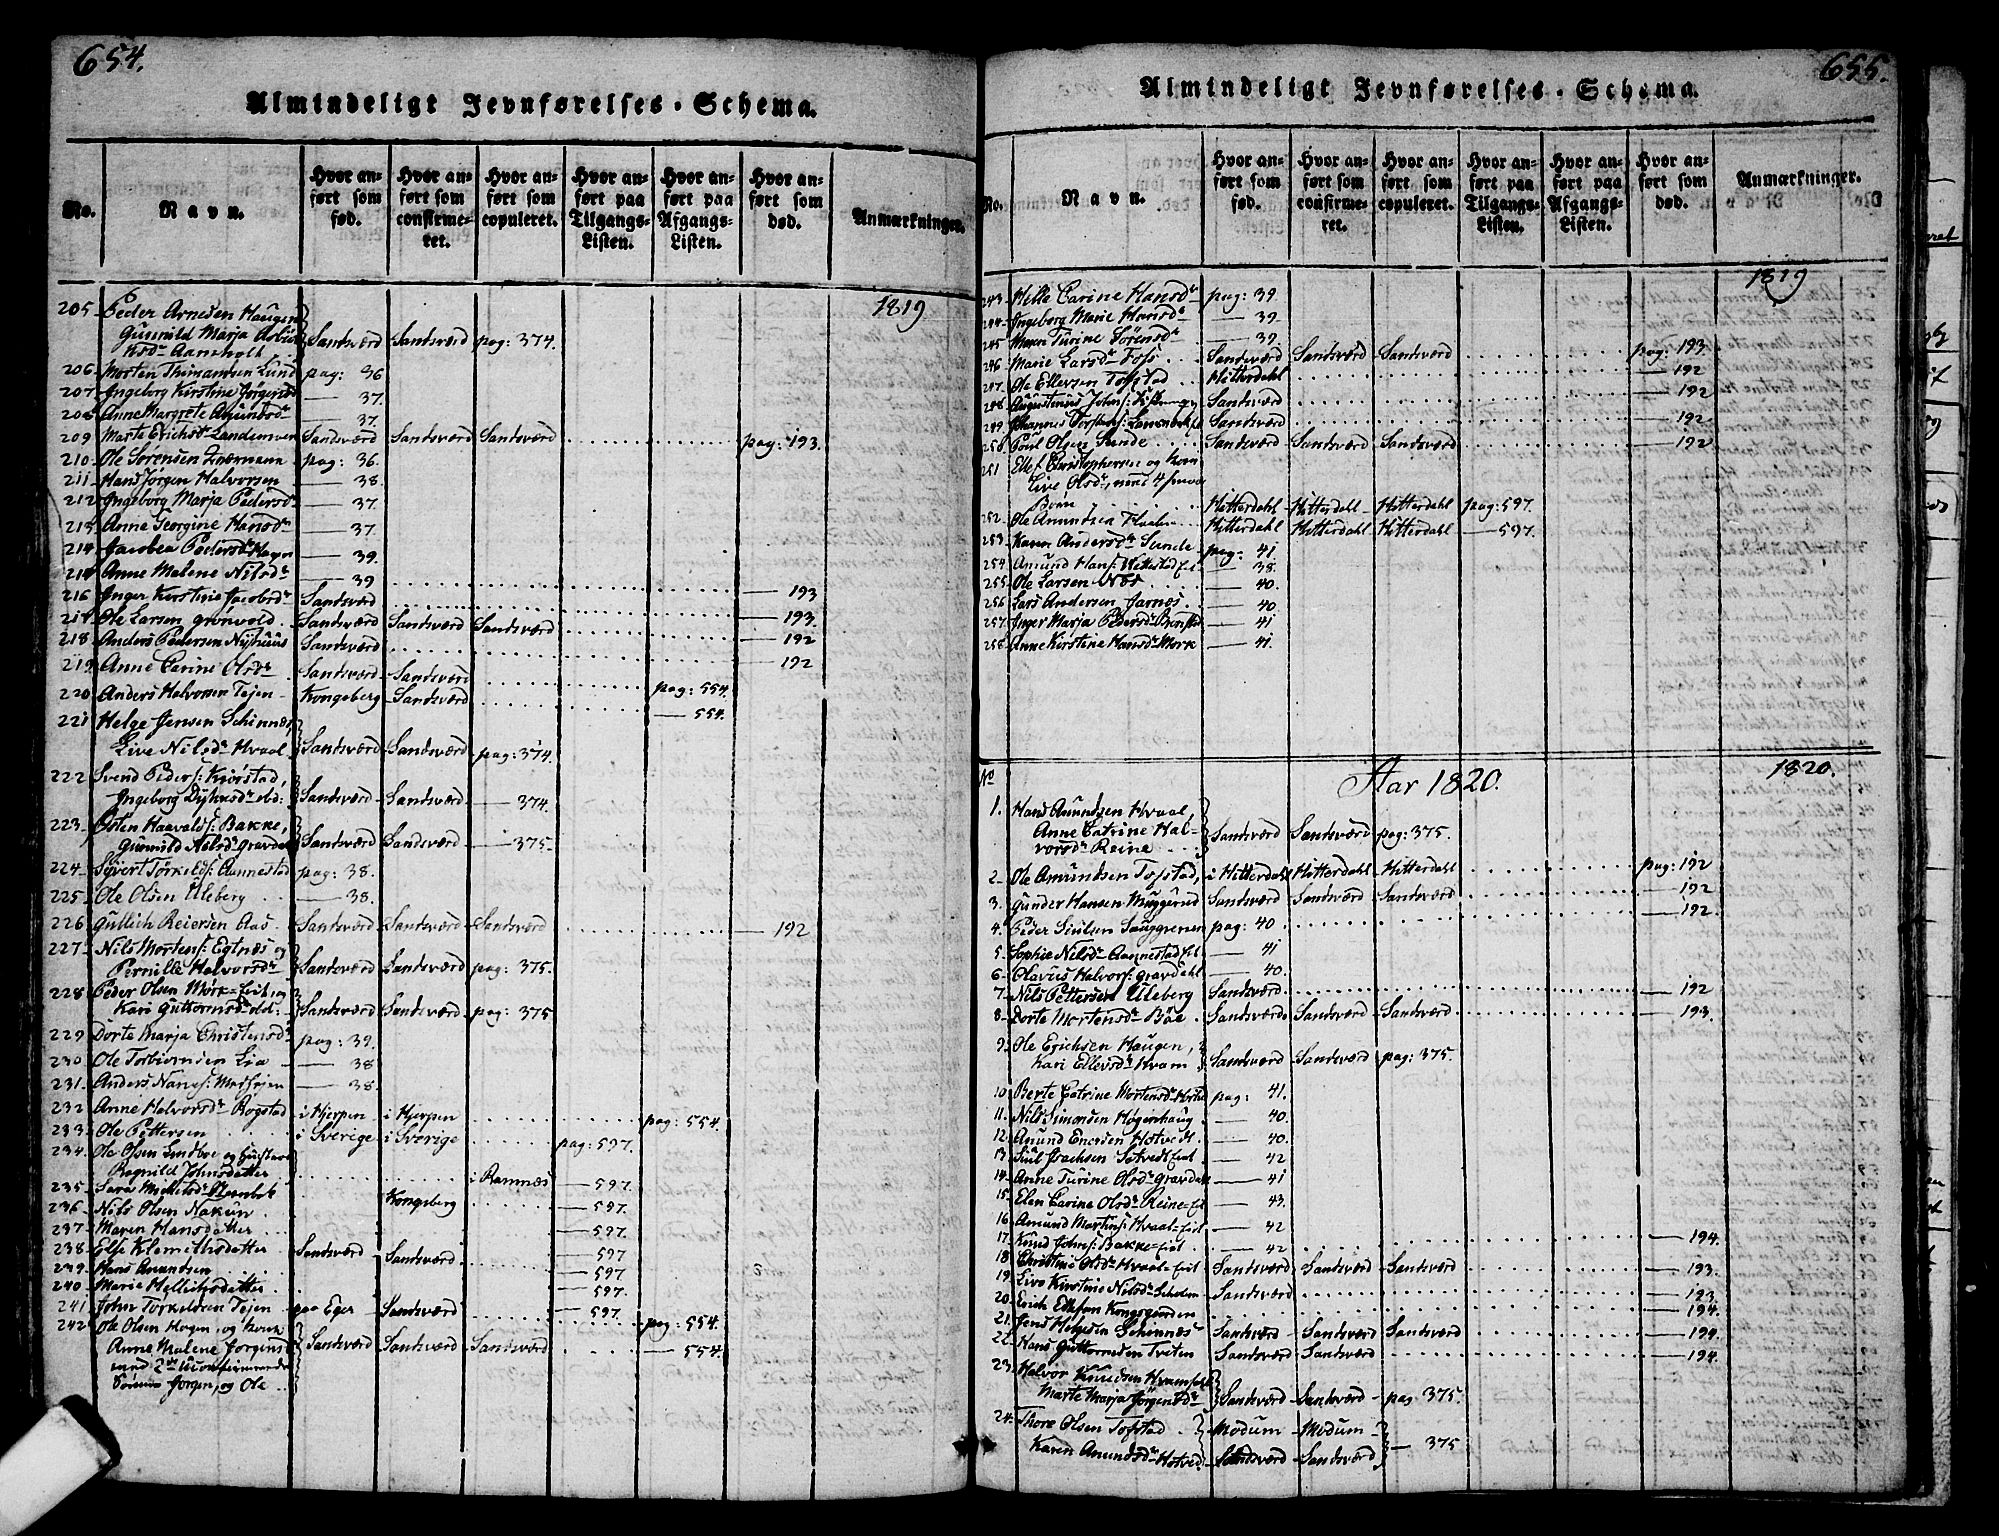 654.
Almindeligt Jevnførelses-Schema.
No.
Navn.
Hvor anført som fød.
Hvor anført som confirmeret.
Hvor anført som copuleret.
Hvor anført paa Tilgangs-Listen.
Hvor anført paa Afgangs-Listen.
Hvor anført som død.
Anmærkninger.
1819
205. Peder Arnesen Haugen
Gunnild Marja
Aamholt Sandsværd Sandsværd pag: 374.
206. Morten Thimansen Lund pag: 36
207. Ingeborg Kirstine Jørgensd — 37.
208. Anne Margrete Amundsdr — 37.
209 Marte Erichsdr Landemven Sandsværd Sandsværd Sandsværd pag: 193.
210. Ole Sørensen pag: 36.
211. Hans Jørgen Halvorsen — 38.
212. Ingeborg Marja Pedersdr — 37.
213. Anne Georgine Hansdr — 37.
214. Jacobea Pedersdr — 39.
214 Anne Malene Nilsdr — 39
216 Inger Kirstine Jacobsdr Sandsværd — 193
217. Ole Larsen Grønvold Sandsværd Sandsværd Sandsværd — 193.
218. Anders Pedersen Nyhuus Sandsværd — 192
219. Anne Carine Olsdr Sandsværd Sandsværd — 192
220. Anders Halvorsen Tejen Kongsberg Sandsværd pag: 554.
221 Helge Jensen Schinnæs — 554.
Live Nilsdr Hvaal Sandsværd Sandsværd pag: 374.
222 Svend Peders: Kiørstad,
Ingeborg Sandsværd Sandsværd — 374.
223. Østen Haavalds: Bakke,
Gunnild Nilsdr Gravdal Sandsværd Sandsværd — 375.
224. Syvert Torkelds: Aannestad pag: 38.
225. Ole Olsen Uleberg — 38.
226 Gullich Reiersen Aas Sandsværd Sandsværd Sandsværd — 192
227. Nils Mortens: Egtnæs og
Pernille Halvorsdr Sandsværd Sandsværd pag: 375.
228 Peder Olsen Mørk=eiet og
Kari Guttormsdr Sandsværd Sandsværd pag: 375
229 Dorte Marja Christensdr pag: 39.
230 Ole Torbiørnsen Lia — 38
231. Anders Nanes: — 38.
232 Anne Halvorsdr Rogstad i Hjerpen i Hjerpen pag: 554.
233 Ole Pettersen i Sverige i Sverige pag: 597.
234. Ole Olsen Lindboe og Hustrue
Ragnild Johnsdatter i Ramnæs — 597.
235 Sara
236 Nils Olsen Nakun Kongsberg — 597.
237 Maren Hansdatter — 597.
238 Else Klemethsdatter Sandsværd Sandsværd — 597
239. Hans Amundsen — 597
240. Marie — 597.
241. John Torkeldsen Tejen paa Eger Sandsværd — 597. pag: 554.
242 Ole Olsen Hogen, og Kone
Anne Malene Jørgensd Sandsværd Sandsværd Sandsværd — 554.
med 2de Uconfirmerede
Sønner Jørgen, og Ole
655.
Almindeligt Jevnførelses-Schema.
No.
Navn.
Hvor anført som fød.
Hvor anført som confirmeret.
Hvor anført som copuleret.
Hvor anført paa Tilgangs-Listen.
Hvor anført paa Afgangs-Listen.
Hvor anført som død.
Anmærkninger.
1819
243. Hilla Carine Hansdr pag: 39.
244. Ingeborg Marie Hansdr — 39.
245 Maren Turine Sørensdr — 39.
246 Marie Larsdr Foss Sandsværd Sandsværd Sandsværd pag: 193.
247. Ole Ellersen Tofstad Hitterdahl — 192
248. Augustenus Johns: Sandsværd — 192
249. Johannes Torstens: Sandsværd — 192
250. Poul Olsen Sunde Sandsværd Sandsværd Sandsværd — 192
251 Ellef Christophersen og Kone
Live Olsdr, med 4
Børn Hitterdahl Hitterdahl Hitterdahl pag: 597.
252. Ole Amundsen Hitterdahl Hitterdahl Hitterdahl — 597.
253. Karen Andersdr Sunde pag: 41
254 Amund Hans: — 38.
255 Ole Larsen Næs — 40.
256. Lars Andersen Jarnæs — 40
257. Inger Marja Pedersdr — 41
258. Anne Kirstine Hansdr Mørk — 41.
No
Aar 1820.
1820.
1. Hans Amundsen Hvaal
Anne Catrine Halvorsdr
Reine Sandsværd Sandsværd pag: 375.
2. Ole Amundsen Tofstad i Hitterdahl Hitterdahl Hitterdahl pag: 192
3. Gunder Hansen Muggerud Sandsværd Sandsværd Sandsværd — 192
4. Peder pag: 40 — 192.
5. Sophie Nilsdr Aannestad Eiet — 41
6. Olavus Halvors: Gravdahl — 40.
7. Nils Pettersen Uleberg Sandsværd — 192
8. Dorte Mortensdr Bøe Sandsværd Sandsværd Sandsværd — 193.
9. Ole Erichsen Haugen,
Kari Ellevsdr Hvam Sandsværd Sandsværd pag: 375.
10 Berte Catrine Mortensdr pag: 41.
11. Nils Simonsen Høgenhaug — 40.
12. Amund Enersen Hotvedt — 40.
13 Juul Isachsen Sotvedt Eiet — 42
14. Anne Turine Olsdr Gravdal — 41
15. Elen Carine Olsdr Reine=Eiet — 43.
16 Amund Martins: Hvaal=Eiet — 42
17. Knud Johns: Bakke=Eiet — 42 — 194.
18. Christine Olsdr Hvaal=Eiet Sandsværd Sandsværd Sandsværd — 193.
19. Live Kirstine Nilsdr Sandsværd — 193
20. Erich Kongsgaarden — 194.
21. Jens Helgesen Schennæs Sandsværd Sandsværd Sandsværd — 194.
22. Hans Guttormsen Tveten Sandsværd Sandsværd — 194.
23. Halvor Knudsen
Marte Marja Jørgensdr Sandsværd Sandsværd pag 375.
24. Thore Olsen Tofstad Modum Modum
Karen Amundsdr Hotved Sandsværd Sandsværd — 375